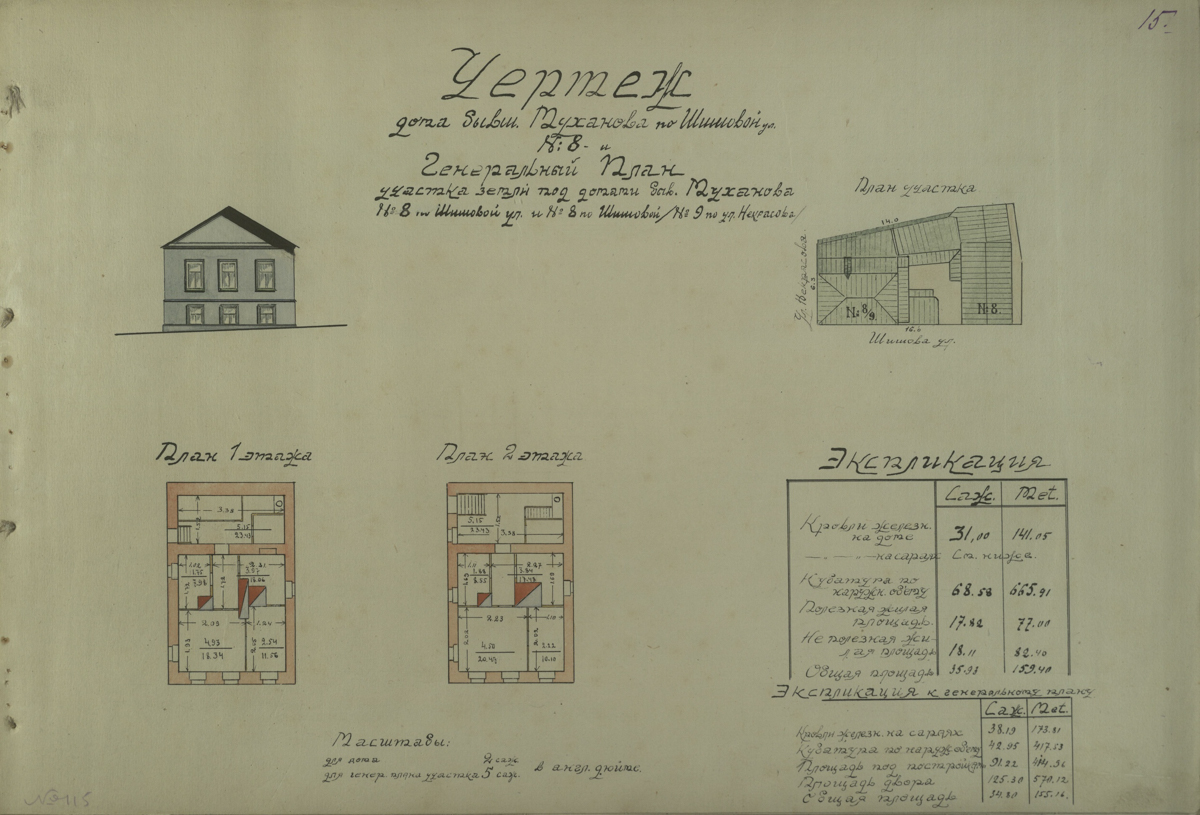 15.
Чертеж
дома бывш. Муханова по Шишовой ул.
№ 8 - и
Генеральный План
участка земли под домами быв. Муханова
№ 8 по Шишовой ул. и № 8 по Шишовой /№ 9 по ул. Некрасова/
План участка
14.0
Ул. Некрасова.
6.3
№ 8/9.
№ 8.
15.6
Шишова ул.
План 1 этажа
План 2 этажа
3.38
5.15
23.43
4.03
18.34
2.54
11.56
5.15
23.43
3.38
2.23
4.50
20.47
2.22
10.10
Экспликация
Саж. Met.
Кровли железн.
на доме 31,00 141.05
—.—.— на сарая См. ниже.
Кубатура по
наружн. обмеру 68.58 665.91
Полезная жилая
площадь. 17.82 77.00
Не полезная жи-
лая площадь 18.11 82.40
Общая площадь 35.93 159.40
Экспликация к генеральному плану
Саж. Met.
Кровли железн. на сараях 38.19 173.81
Кубатура по наруж. обмеру 42.95 417.53
Площадь под постройкам 91.22 414.96
Площадь двора 125.30 570.12
Общая площадь 34.80 155.16.
Масштабы:
для дома 2 саж.
для генер. плана участка 5 саж. в англ. дюйме.
№ 115